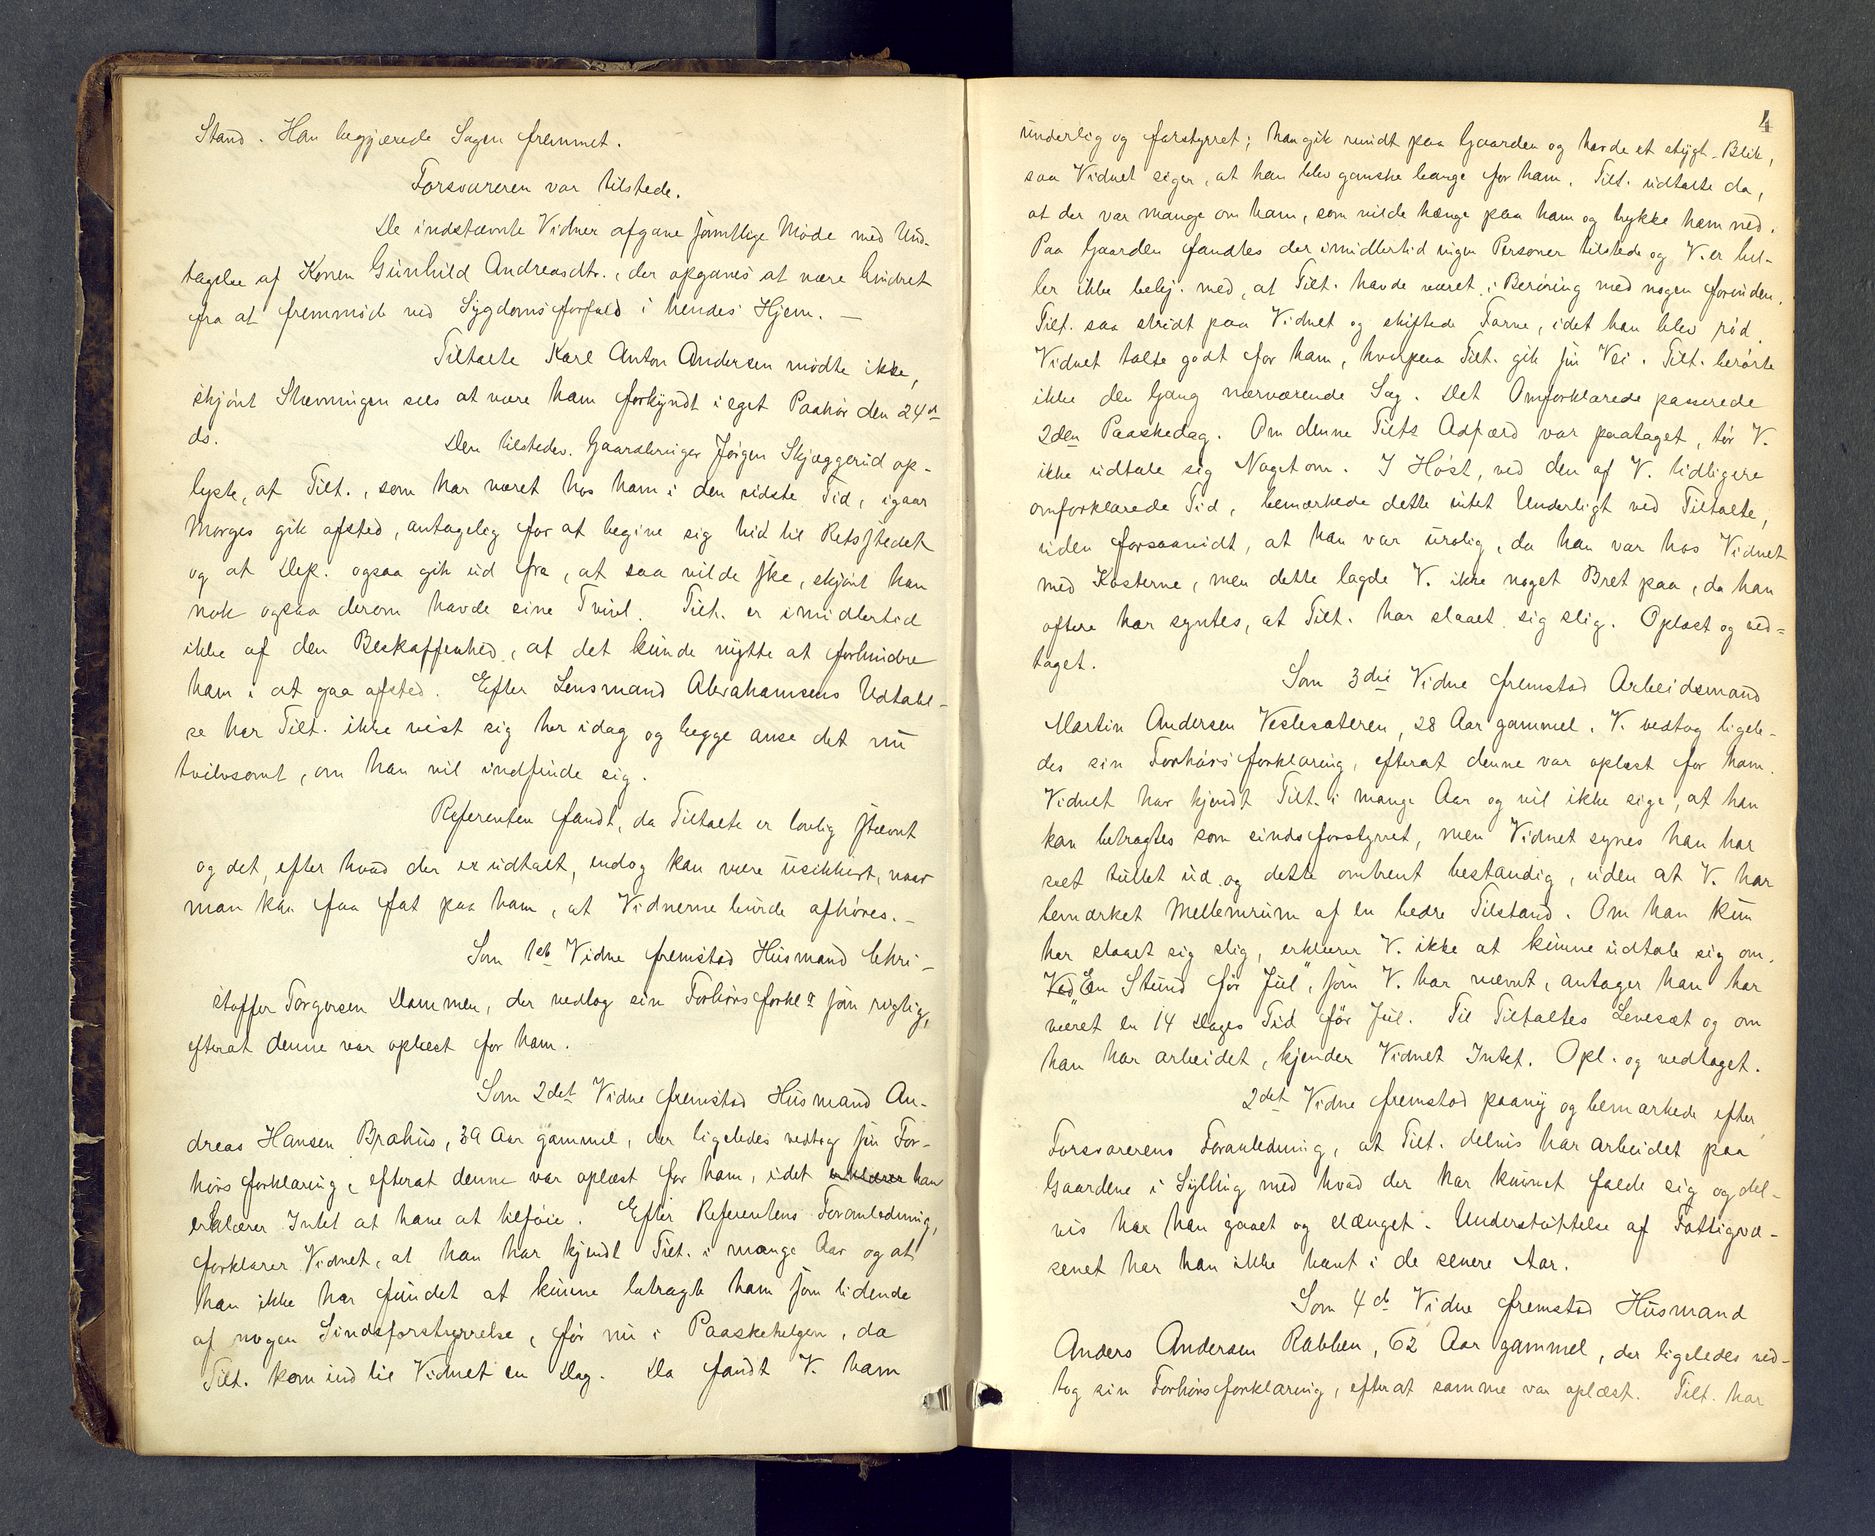 Stand. Han begjærede Sagen fremmet.
Forsvareren var tilstede.
De indstævnte Vidner afgave samtlige Møde med Und-
tagelse af Konen Gunhild Andreasdtr., der opgaves at være hindret
fra at fremmøde ved Sygdomsforfald i hendes Hjem. —
Tiltalte Karl Anton Andersen mødte ikke,
skjønt Stævningen sees at være ham forkyndt i eget Paahør den 24de
ds.
Den tilstedev. Gaardbruger Jørgen Skjæggerud op-
lyste, at Tilt., som har været hos ham i den sidste Tid, igaar
Morges gik afsted, antagelig for at begive sig hid til Retsstedet
og at Dep. ogsaa gik ud fra, at saa vilde ske, skjønt han
nok ogsaa derom havde sine Tvivl. Tilt. er imidlertid
ikke af den Beskaffenhed, at det kunde nytte at forhindre
ham i at gaa afsted. Efter Lensmand Abrahamsens Udtalel-
se har Tilt. ikke vist sig her idag og begge anse det nu
tvilsomt, om han vil indfinde sig.
Referenten fandt, da Tiltalte er lovlig stævnt
og det, efter hvad der er udtalt, endog kan være usikkert, naar
man kan faa fat paa ham, at Vidnerne burde afhøres. —
Som 1ste Vidne fremstod Husmand Chri-
stoffer Torgersen Dammen, der vedtog sin Forhørsforkl. som rigtig,
efterat denne var oplæst for ham.
Som 2det Vidne fremstod Husmand An-
dreas Hansen Brahus, 39 Aar gammel, der ligeledes vedtog sin For-
hørsforklaring, efterat denne var oplæst for ham, idet erklærer han
erklærer Intet at have at tilføie. Efter Referentens Foranledning,
forklarer Vidnet, at han har kjendt Tilt. i mange Aar og at
han ikke har fundet at kunne betragte ham som lidende
af nogen Sindsforstyrrelse, før nu i Paaskehelgen, da
Tilt. kom ind til Vidnet en Dag. Da fandt V. ham
4
underlig og forstyrret; han gik rundt paa Gaarden og havde et stygt Blik,
saa Vidnet siger, at han blev ganske bange for ham. Tilt. udtalte da,
at der var mange om ham, som vilde hænge paa ham og trykke ham ned.
Paa Gaarden fandtes der imidlertid ingen Personer tilstede og V. er hel-
ler ikke bekj. med, at Tilt. havde været i Berøring med nogen forinden.
Tilt. saa stridt paa Vidnet og skiftede Farve, idet han blev rød.
Vidnet talte godt for ham, hvorpaa Tilt. gik sin Vei. Tilt. berørte
ikke den Gang nærværende Sag. Det Omforklarede passerede
2den Paaskedag. Om denne Tilts Adfærd var paataget, tør V.
ikke udtale sig Noget om. I Høst, ved den af V. tidligere
omforklarede Tid, bemærkede dette intet Underligt ved Tiltalte,
uden forsaavidt, at han var urolig, da han var hos Vidnet
med Kosterne, men dette lagde V. ikke noget Bret paa, da han
oftere har syntes, at Tilt. har slaaet sig slig. Oplæst og ved-
taget.
Som 3die Vidne fremstod Arbeidsmand
Martin Andersen Veslesateren, 28 Aar gammel. V. vedtog ligele-
des sin Forhørsforklaring, efterat denne var oplæst for ham.
Vidnet har kjendt Tilt. i mange Aar og vil ikke sige, at han
kan betragtes som sindsforstyrret, men Vidnet synes han har
seet tullet ud og dette omtrent bestandig, uden at V. har
bemærket Mellemrum af en bedre Tilstand. Om han kun
har slaaet sig slig, erklærer V. ikke at kunne udtale sig om.
Ved "En Stund før Jul", som V. har nævnt, antager han har
været en 14 Dages Tid før Jul. Til Tiltaltes Levesæt og om
han har arbeidet, kjender Vidnet Intet. Opl. og vedtaget.
2det Vidne fremstod paany og bemærkede efter
Forsvarerens Foranledning, at Tilt. delvis har arbeidet paa
Gaardene i Sylling med hvad der har kunnet falde sig og del-
vis har han gaaet og slænget. Understøttelse af Fattigvæ-
senet har han ikke havt i de senere Aar.
Som 4de Vidne fremstod Husmand
Anders Andersen Rabben, 62 Aar gammel, der ligeledes ved-
tog sin Forhørsforklaring, efterat samme var oplæst. Tilt. har